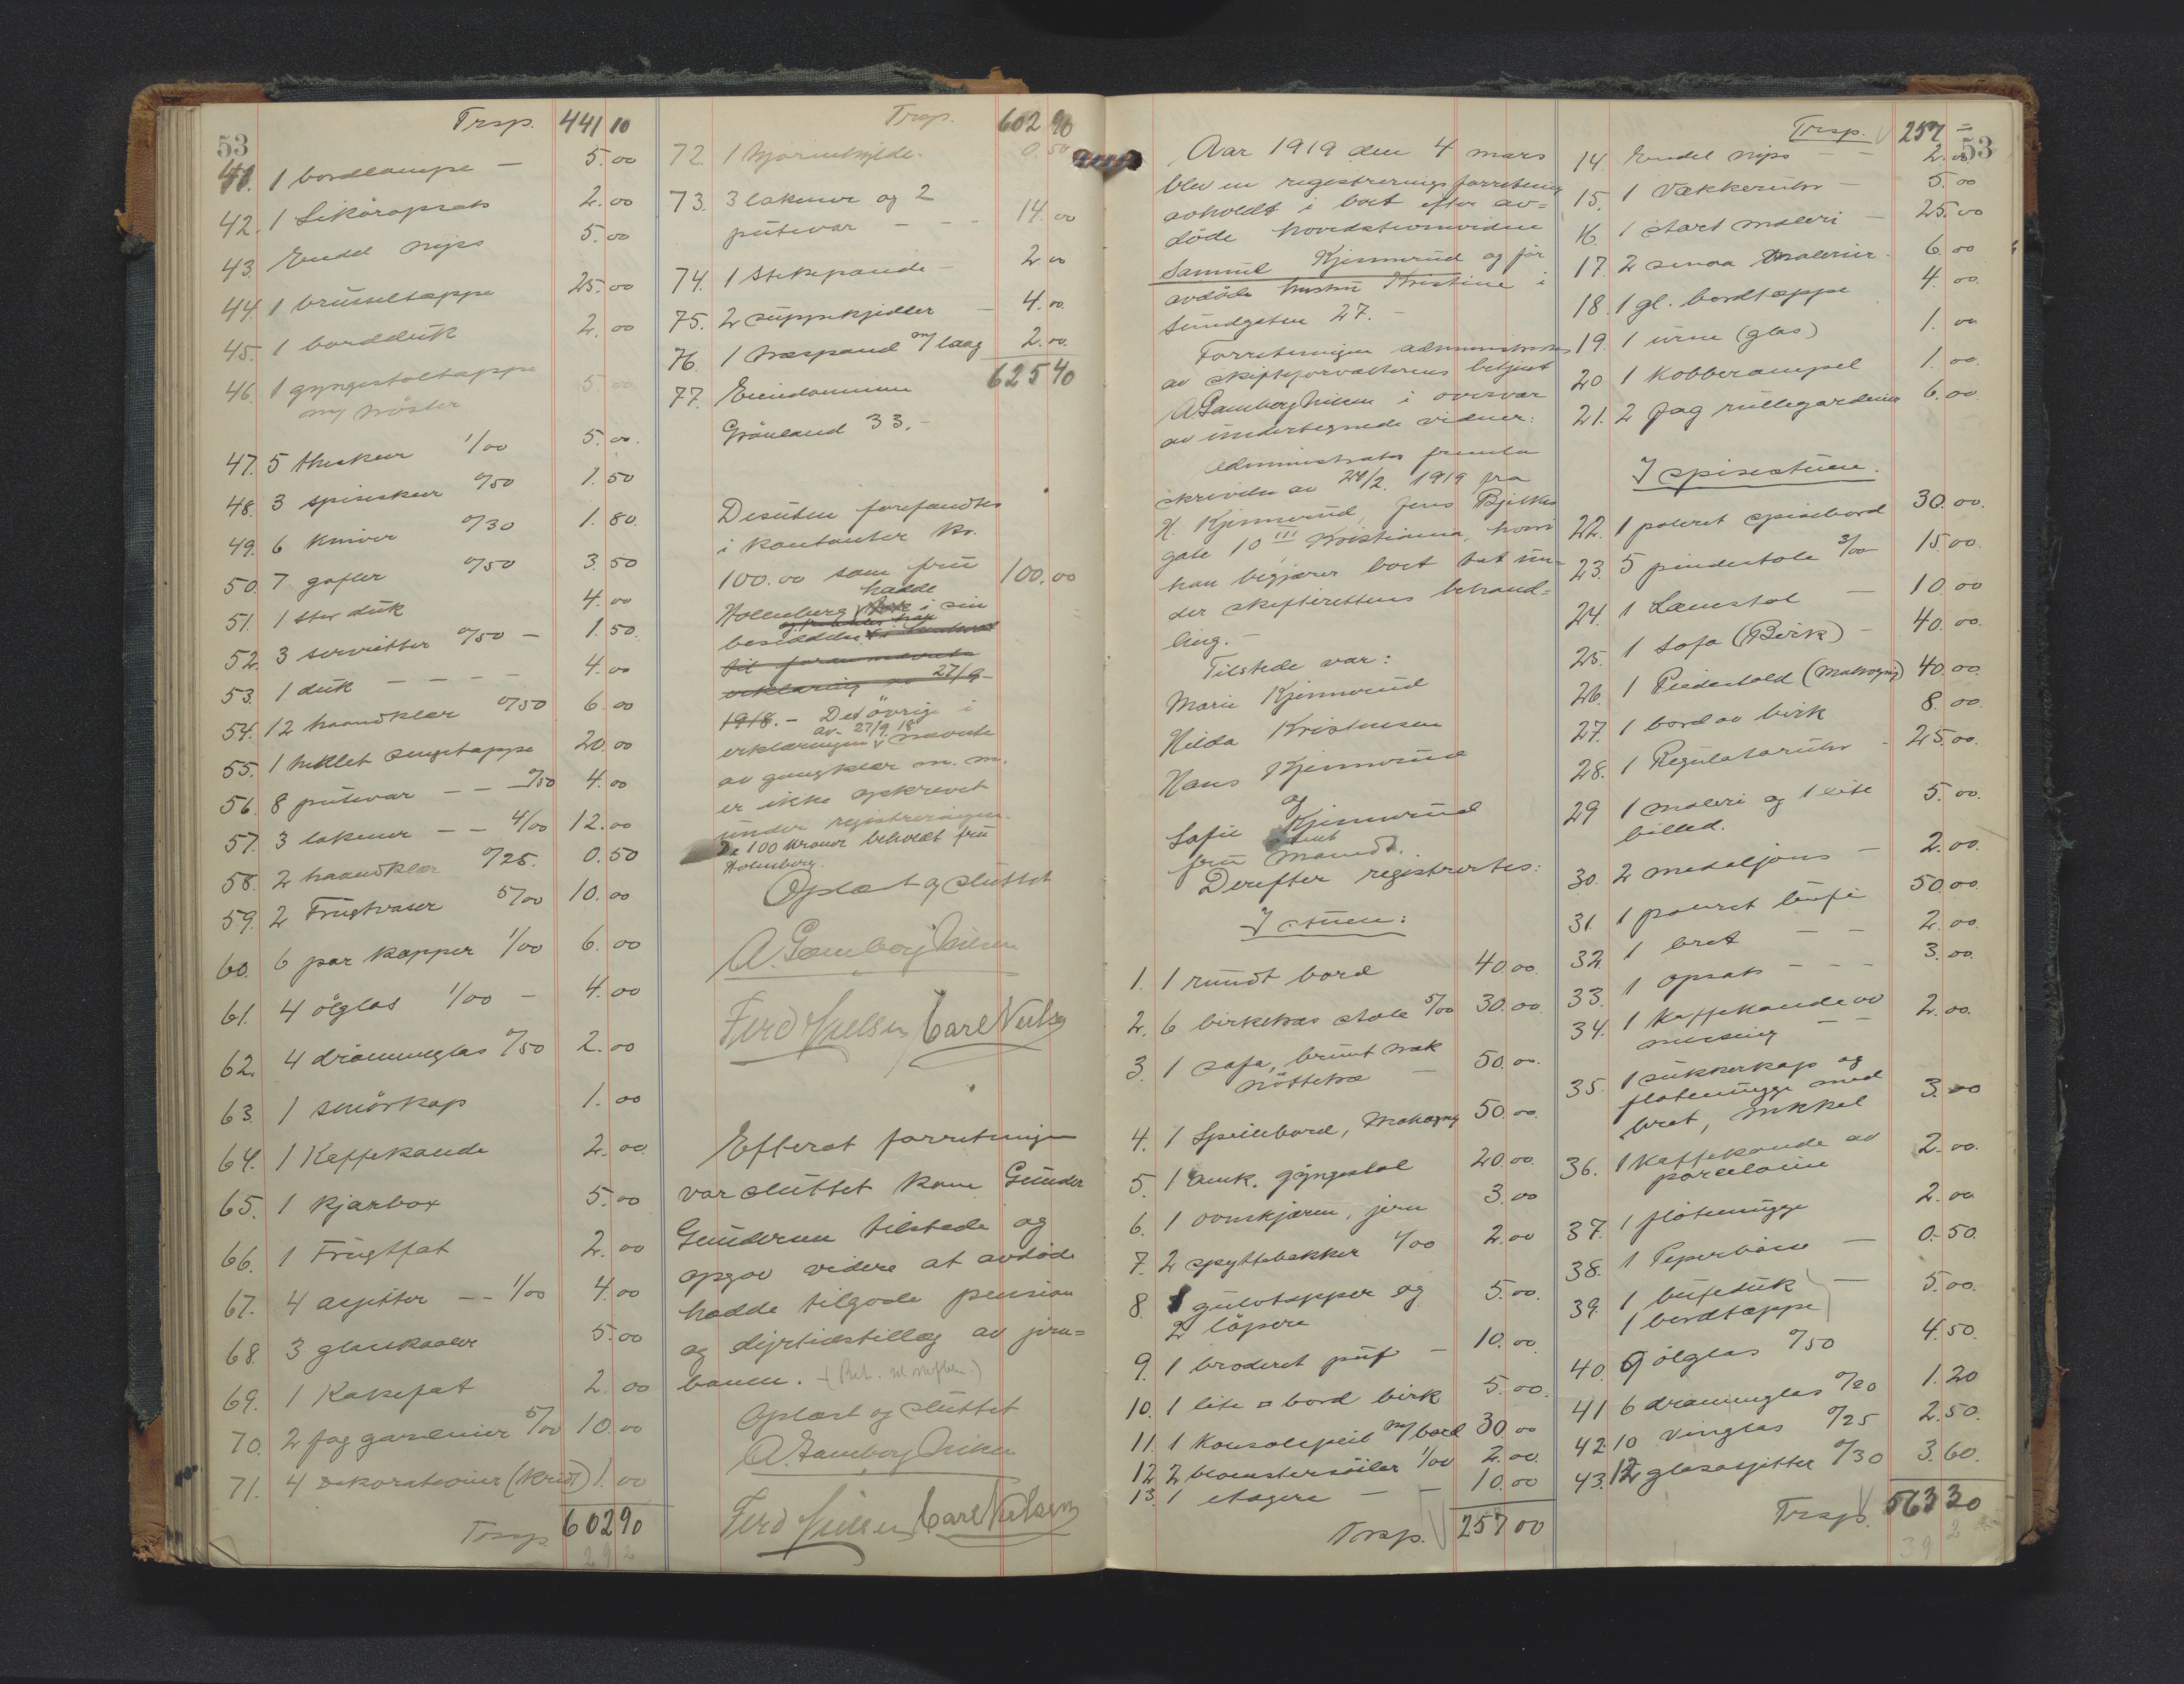 53
Trsp. 441 10
41. 1 bordlampe - 5.00
42. 1 Liköropsats 2.00
43. Endel nips 5.00
44. 1 brüsseltæppe 25.00
45. 1 bordduk 2.00
46. 1 gyngestoltæppe 5.00
m/ nöster
47. 5 theskeer 1/00 5.00.
48. 3 spiseskeer 0/50 1.50
49. 6 kniver 0/30 1.80.
50. 7 gafler 0/50 3.50
51. 1 stor duk 4.00
52. 3 servietter 0/50 - 1.50.
53. 1 duk - - - - 4.00
54. 12 haandklær 0/50 6.00
55. 1 heklet sengetæppe 20.00
56. 8 putevar - - - 0/50 4.00
57. 3 lakener - - 4/00 12.00
58. 2 haandklær 0/25. 0.50
59. 2 Frugtvaser 5/00 10.00
60. 6 par kopper 1/00 6.00
61. 4 ölglas 1/00 - 4.00
62. 4 drammeglas 0/50 2.00
63 1 smörkop 1.00
64. 1 Kaffekande 2.00.
65. 1 kjærbox 5.00
66. 1 Frugtfat 2.00
67. 4 asjetter - - 1/00 4.00
68. 3 glasskaaler 5.00
69. 1 Kakefat 2.00
70. 2 fag gardenier 5/00 10.00
71. 4 dekorationer (Kridt) 1.00
Trsp. 602 90
Trsp. 602 90
72 1 hjörnehylde. 0.50
73. 3 lakener og 2
putevar - - - 14.00
74. 1 Stekepande - 2.00
75. 2 suppekjedler - 4.00.
76. 1 vaspand m/laag 2.00.
625 40
77. Eiendommen
Grönland 33.-
Desuten forefandtes
i kontanter kr.
100.00 som fru 100.00
hadde
Holmberg i sin
besiddelse
til forannævnte
erklæring av 27/9-
1918. - Det övrige i
av 27/9 18
erklæringen nævnte
av gangklær m. m.
er ikke opskrevet
under registreringen.
De 100 kroner beholdt fru
Holmberg.
Oplæst og sluttet
A. Gamborg Nilsen
Ferd Nielsen Carl Nielsen
Efterat forretningen
var sluttet kom Gunder
Gundersen tilstede og
opgav videre at avdöde
hadde tilgode pension
og dyrtidstillæg av jern=
banen.
Oplæst og sluttet
A. Gamborg Nilsen
Ferd Nielsen Carl Nielsen
Aar 1919 den 4 mars
blev en registreringsforretning
avholdt i boet efter av=
döde
Samuel Kjennerud og för
avdöde hustru Kristine i
Sundgaten 27. -
Forretningen administrertes
av skifteforvalterens betjent
A Gamborg Nilsen i overvær
av undertegnede vidner:
Administrator fremla
skrivelse av 24/2. 1919 fra
H. Kjennerud, Jens Bjelkes
gate 10 III, Kristiania, hvori
han begjærer boet tat un=
der skifterettens behand=
ling. -
Tilstede var:
Marie Kjennerud
Hilda Kristensen
Hans Kjennerud
og
Sofie Kjennerud
samt
fru Manedt.
Derefter registrertes:
I stuen:
1. 1 rundt bord 40.00.
2. 6 birketræs stole 5/00 30.00.
3. 1 sofa, brunt træk
nöttetræ - 50.00.
4. 1 Speilebord, Mahogny 50.00.
5. 1 amk. gyngestol 20.00.
6. 1 ovnskjærm, jern 3.00
7. 2 spyttebakker 1/00 2.00
8. 1 gulvtæpper og 5.00.
2 löpere
9. 1 broderet puf - 10.00.
10. 1 lite □ bord birk 5.00.
11. 1 Konsolspeil m/bord 30.00
12 2 blomstersöiler 1/00 2.00.
13. 1 etagere - - 10.00
Trsp. 257 00
53
Trsp. 257 =
14. Endel nips - 2.00.
15. 1 Vækkerur - 5.00
16. 1 stort maleri - 25.00
17. 2 smaa malerier. 6.00
18. 1 gl. bordtæppe 4.00.
19. 1 urne (glas) 1.00
20 1 Kobberampel 1.00.
21. 2 fag rullegardenier 6.00.
I spisestuen.
22. 1 poleret spisebord 30.00.
23. 5 pindestole 3/00 15.00.
24. 1 Lænstol - 10.00
25. 1 Sofa (Birk) - 40.00.
26. 1 Piedestald (Mahogny) 40.00.
27. 1 bord av birk 8.00.
28. 1 Regulatorur - 25.00.
29 1 maleri og 1 lite 5.00.
billed.
30. 2 medaljons - 2.00.
31. 1 poleret büfe 50.00.
32. 1 bret - - 2.00.
33. 1 opsats - - - 3.00.
34. 1 Kaffekande av
messing - - 2.00.
35. 1 sukkerkop og
flötemugge med
bret, nikkel 3.00
36. 1 Kaffekande av
porcelaine 2.00.
37. 1 flötemugge 2.00
38. 1 Peperbösse - 0.50.
39. 1 büfeduk - 5.00.
1 bordtæppe
40. 9 ölglas 0/50 4.50.
41 6 drammeglas 0/20 1.20
42. 10 vinglas 0/25 2.50.
43. 12 glasasjetter 0/30 3.60.
Trsp. 563 30